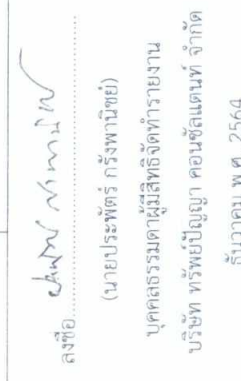 ลงชื่อ
(นายประพัตร์ กรังพานิชย์)
บุคคลธรรมดาผู้มีสิทธิจัดทำรายงาน
บริษัท ทรัพย์ปัญญา คอนซัลแตนท์ จำกัด
ธันวาคม พ.ศ. 2564